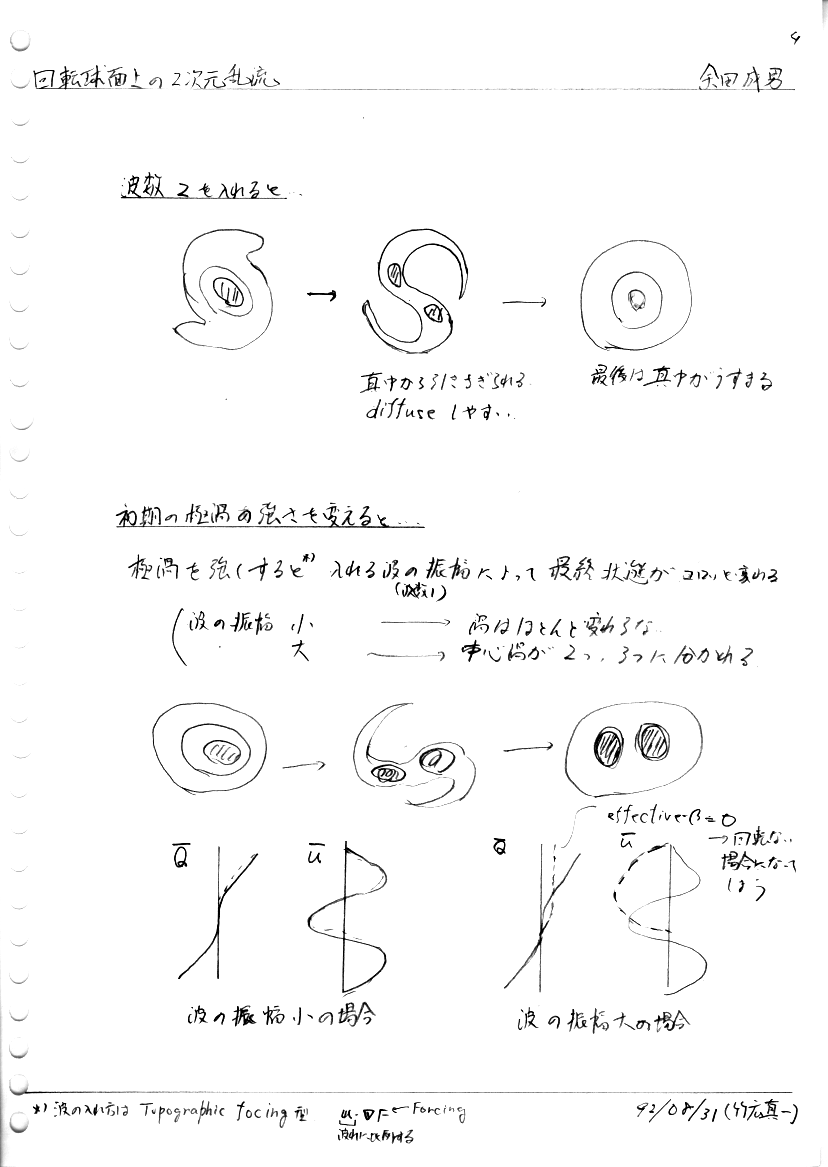 4
回転球面上の2次元乱流 余田成男
波数2を入れると...
真中から引きさぎられる
diffuse しやすい..
最後は真中がうすまる
初期の極渦の強さを変えると...
極渦を強くすると*) 入れる波の振幅によって最終状態がコロッと変わる
(波数1)
波の振幅 小 → 渦はほとんど変わらない
大 → 中心渦が2つ、3つに分かれる
effective-β=0
Q̅ u̅ Q̅ u̅ →回転ない
場合になって
しまう
波の振幅小の場合 波の振幅大の場合
*) 波の入れ方は Topographic focing 型 u・∇F ← Forcing 92/08/31 (竹広真一)
に比例する